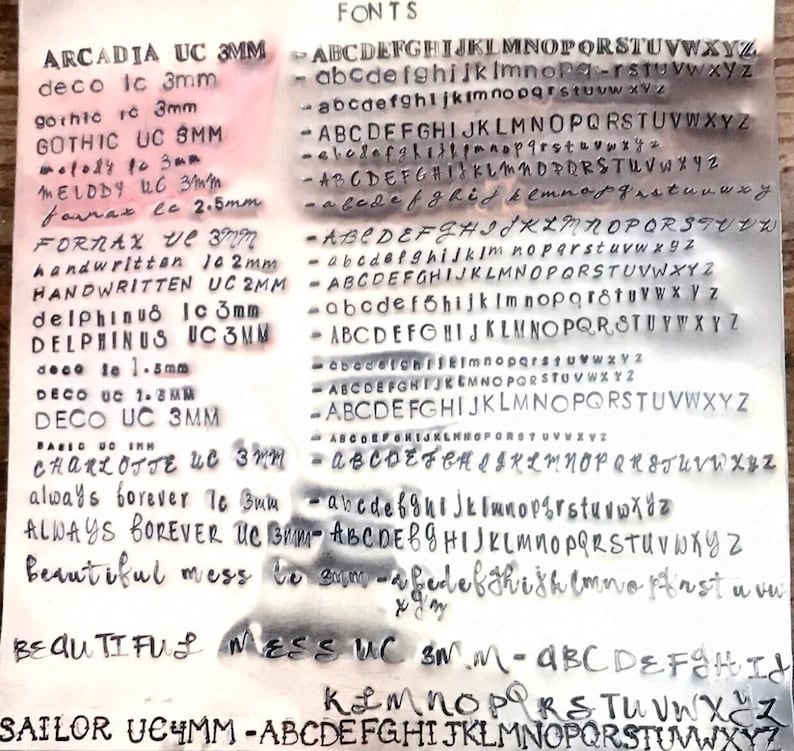 FONTS
ARCADIA UC 3MM - ABCDEFGHIJKLMNOPQRSTUVWXYZ
deco lc 3mm - abcdefghijklmnopq-rstuvwxyz
gothic lc 3mm - abcdefghijklmnopqrstuvwxyz
GOTHIC UC 3MM - ABCDEFGHIJKLMNOPQRSTUVWXYZ
melody lc 3mm - abcdefghijklmnopqrstuvwxyz
MELODY UC 3MM - ABCDEFGHIJKLMNOPQRSTUVWXYZ
fornax lc 2.5mm - abcdefghijklmnopqrstuvwxy
FORNAX UC 3MM - ABCDEFGHIJKLMNOPQRSTUVW
handwritten lc 2mm - abcdefghijklmnopqrstuvwxyz
HANDWRITTEN UC 2MM - ABCDEFGHIJKLMNOPQRSTUVWXYZ
delphinus lc 3mm - abcdefghijklmnopqrstuvwxyz
DELPHINUS UC 3MM - ABCDEFGHIJKLMNOPQRSTUVWXYZ
deco lc 1.5mm - abcdefghijklmnopqrstuvwxyz
DECO UC 1.5MM - ABCDEFGHIJKLMNOPQRSTUVWXYZ
DECO UC 3MM - ABCDEFGHIJKLMNOPQRSTUVWXYZ
BASIC UC 1MM - ABCDEFGHIJKLMNOPQRSTUVWXYZ
CHARLOTTE UC 3MM - ABCDEFGHIJKLMNOPQRSTUVWXYZ
always forever lc 3mm - abcdefghijklmnopqrstuvwxyz
ALWAYS FOREVER UC 3mm - ABCDEFGHIJKLMNOPQRSTUVWXYZ
beautiful mess lc 3mm - abcdefghijklmnopqrstuvw
xyz
BEAUTIFUL MESS UC 3MM - ABCDEFGHIJ
KLMNOPQRSTUVWXYZ
SAILOR UC4MM - ABCDEFGHIJKLMNOPQRSTUVWXYZ